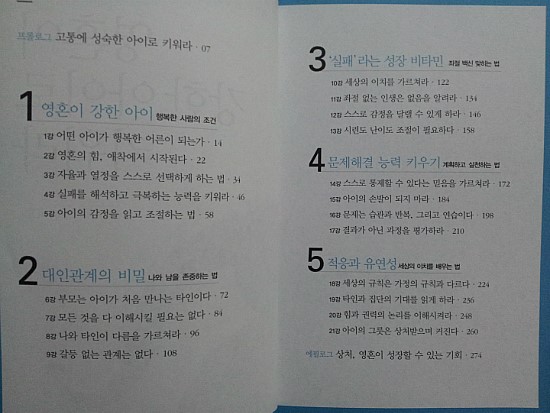 프롤로그 고통에 성숙한 아이로 키워라 · 07
1 영혼이 강한 아이 행복한 사람의 조건
1강 어떤 아이가 행복한 어른이 되는가 · 14
2강 영혼의 힘, 애착에서 시작된다 · 22
3강 자율과 열정을 스스로 선택하게 하는 법 · 34
4강 실패를 해석하고 극복하는 능력을 키워라 · 46
5강 아이의 감정을 읽고 조절하는 법 · 58
2 대인관계의 비밀 나와 남을 존중하는 법
6강 부모는 아이가 처음 만나는 타인이다 · 72
7강 모든 것을 다 이해시킬 필요는 없다 · 84
8강 나와 타인이 다름을 가르쳐라 · 96
9강 갈등 없는 관계는 없다 · 108
3 ‘실패’라는 성장 비타민 좌절 백신 맞히는 법
10강 세상의 이치를 가르쳐라 · 122
11강 좌절 없는 인생은 없음을 알려라 · 134
12강 스스로 감정을 달랠 수 있게 하라 · 146
13강 시련도 난이도 조절이 필요하다 · 158
4 문제해결 능력 키우기 계획하고 실천하는 법
14강 스스로 통제할 수 있다는 믿음을 가르쳐라 · 172
15강 아이의 손발이 되지 마라 · 184
16강 문제는 습관과 반복, 그리고 연습이다 · 198
17강 결과가 아닌 과정을 평가하라 · 210
5 적응과 유연성 세상의 이치를 배우는 법
18강 세상의 규칙은 가정의 규칙과 다르다 · 224
19강 타인과 집단의 기대를 읽게 하라 · 236
20강 힘과 권력의 논리를 이해시켜라 · 248
21강 아이의 그릇은 상처받으며 커진다 · 260
에필로그 상처, 영혼이 성장할 수 있는 기회 · 274